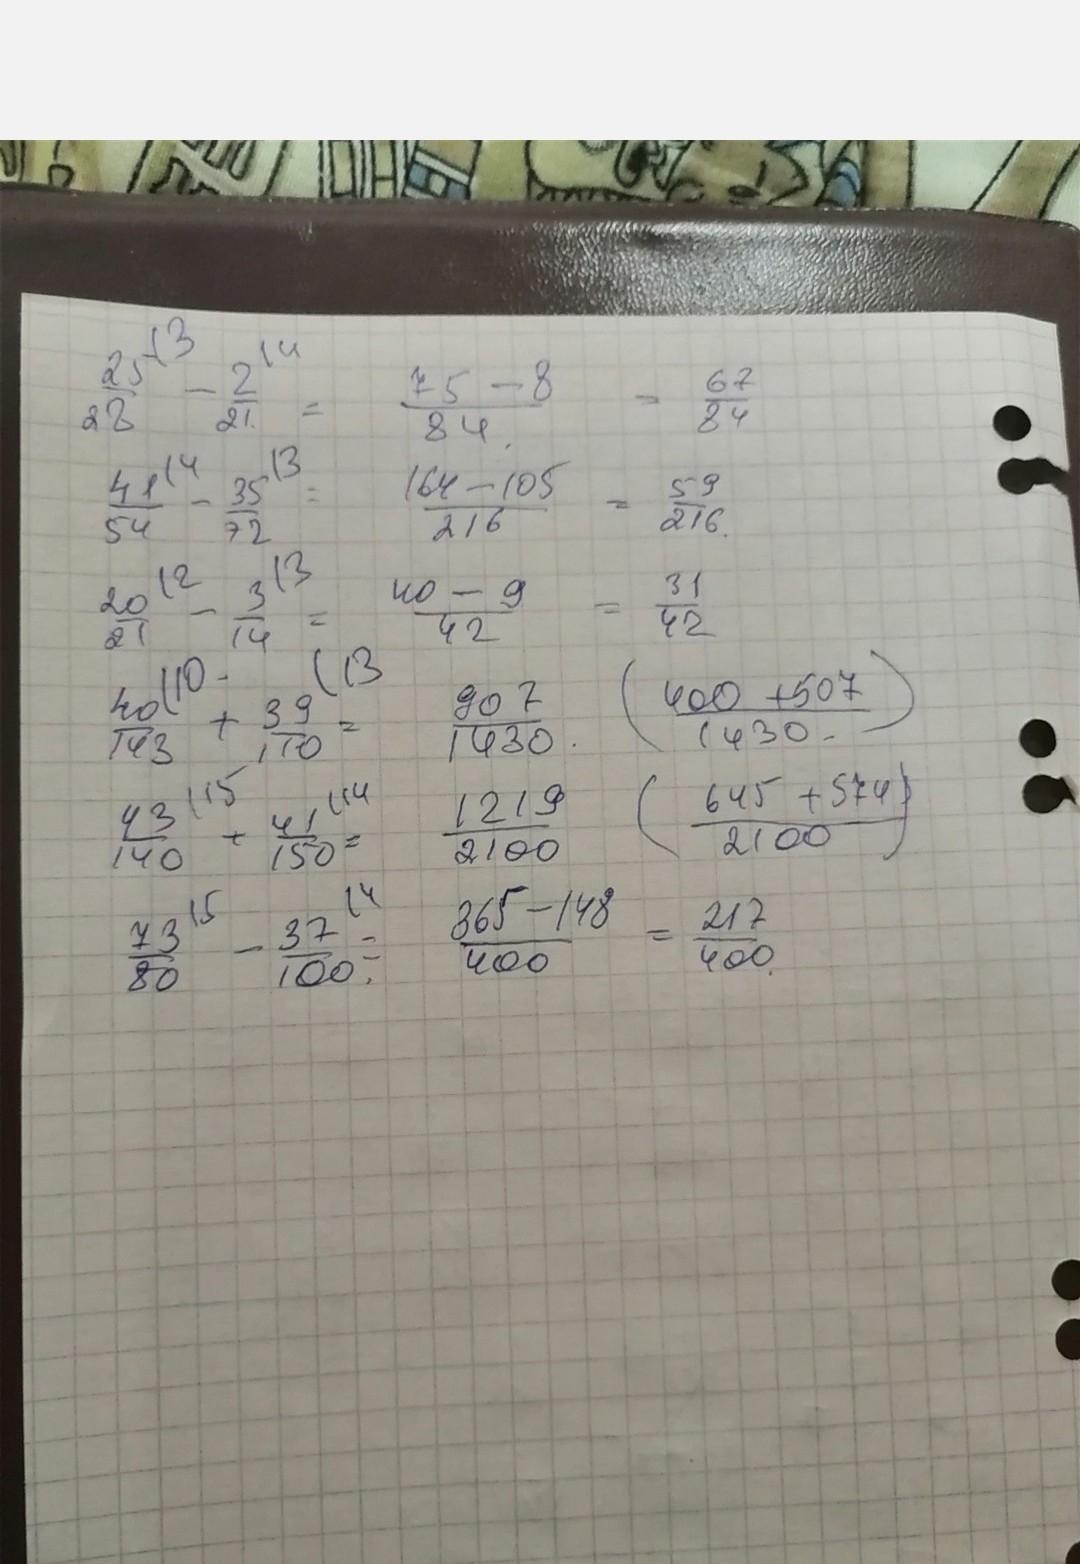 25/28 (3 - 2/21 (4 = (75 - 8)/84 = 67/84
41/54 (4 - 35/72 (3 = (164 - 105)/216 = 59/216.
20/21 (2 - 3/14 (3 = (40 - 9)/42 = 31/42
40/143 (10 + 39/110 (13 = 907/1430. ((400 + 507)/1430)
43/140 (15 + 41/150 (14 = 1219/2100 ((645 + 574)/2100)
73/80 (5 - 37/100 (4 = (365 - 148)/400 = 217/400.